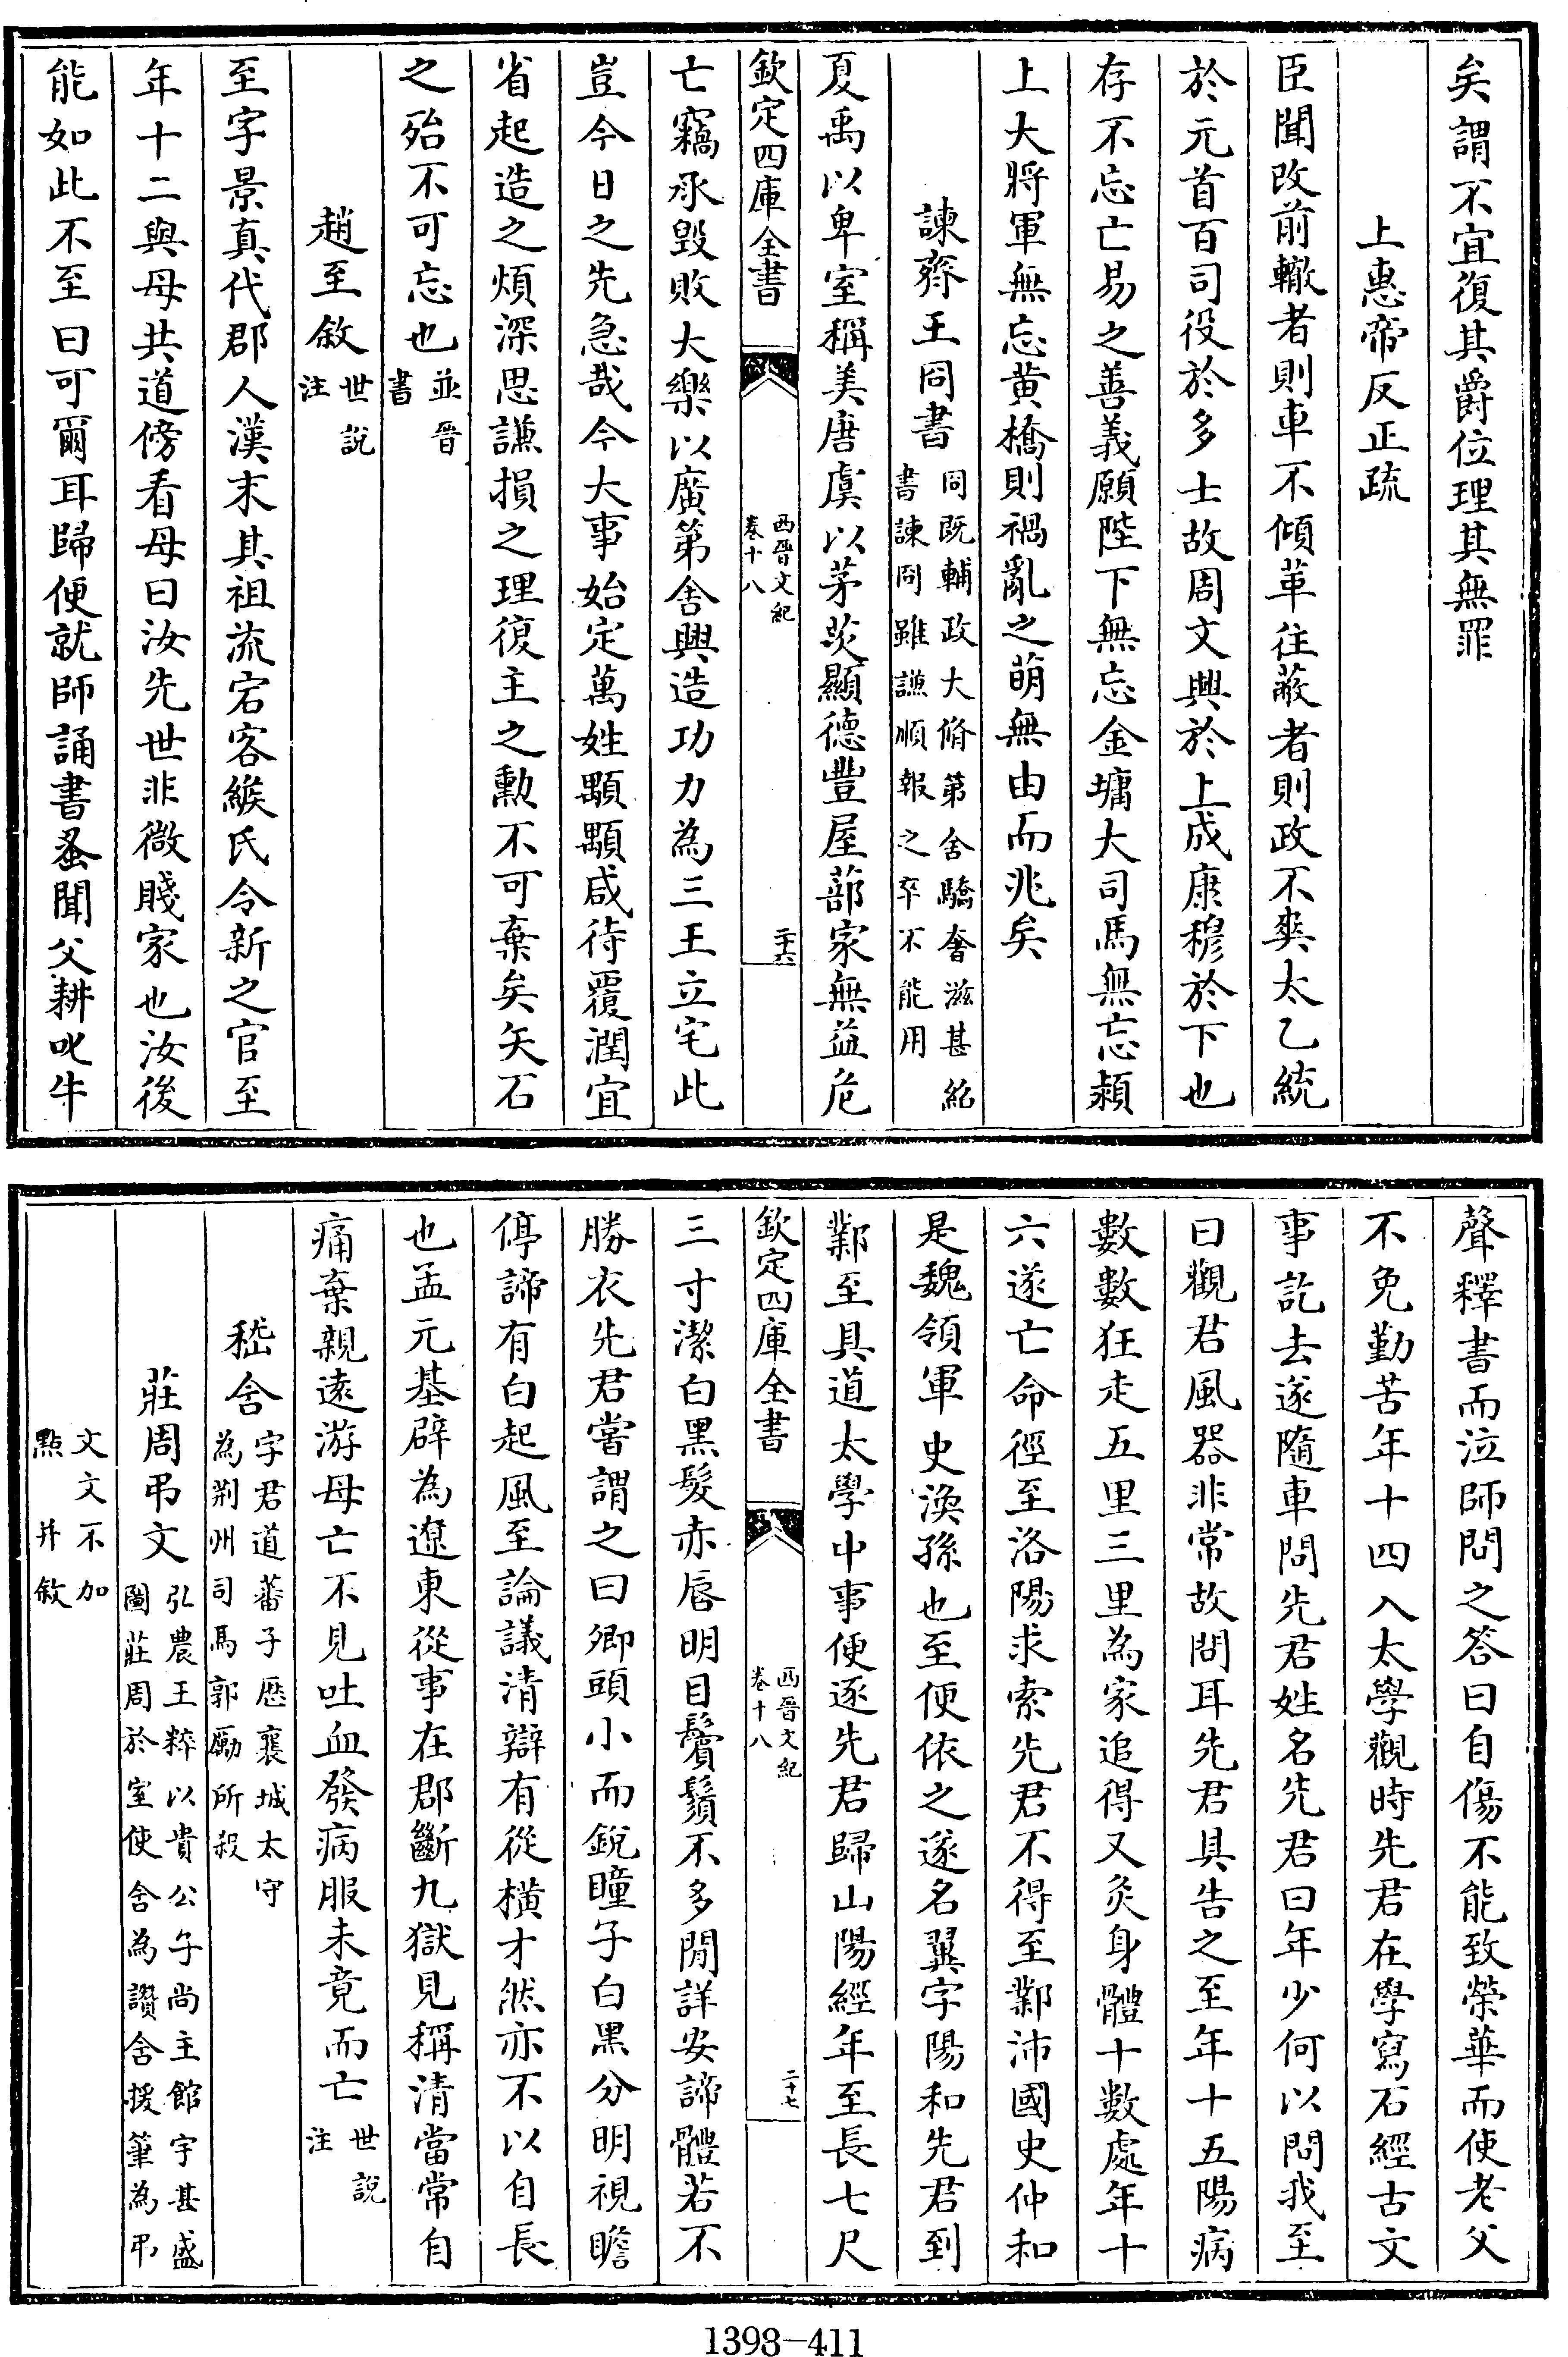 矣謂不宜復其爵位理其無罪
上惠帝反正疏
臣聞改前轍者則車不傾革往蔽者則政不爽太乙統
於元首百司役於多士故周文興於上成康穆於下也
存不忘亡易之善義願陛下無忘金墉大司馬無忘潁
上大將軍無忘黄橋則禍亂之萌無由而兆矣
諫齊王冏書
同既輔政大脩第舍驕奢滋甚紹
書諫冏雖謙順報之卒不能用
夏禹以卑室稱美唐虞以茅茨顯德豐屋蔀家無益危
欽定四庫全書
西晉文紀
卷十八
二十六
亡竊承毀敗大樂以廣第舍興造功力為三王立宅此
豈今日之先急哉今大事始定萬姓顒顒咸待覆潤宜
省起造之煩深思謙損之理復主之勲不可棄矣矢石
之殆不可忘也
並晉
書
趙至敘
世説
注
至字景真代郡人漢末其祖流宕客緱氏令新之官至
年十二與母共道傍看母曰汝先世非微賤家也汝後
能如此不至曰可爾耳歸便就師誦書蚤聞父耕叱牛
聲釋書而泣師問之答曰自傷不能致榮華而使老父
不免勤苦年十四入太學觀時先君在學寫石經古文
事訖去遂隨車問先君姓名先君曰年少何以問我至
曰觀君風器非常故問耳先君具告之至年十五陽病
數數狂走五里三里為家追得又灸身體十數處年十
六遂亡命徑至洛陽求索先君不得至鄴沛國史仲和
是魏領軍史渙孫也至便依之遂名翼字陽和先君到
鄴至具道太學中事便逐先君歸山陽經年至長七尺
欽定四庫全書
西晉文紀
卷十八
二十七
三寸潔白黑髮赤唇明目鬢鬚不多閒詳安諦體若不
勝衣先君嘗謂之曰卿頭小而銳瞳子白黑分明視瞻
停諦有白起風至論議清辯有從横才然亦不以自長
也孟元基辟為遼東從事在郡斷九獄見稱清當常自
痛棄親逺游母亡不見吐血發病服未竟而亡
世説
注
嵇含
字君道蕃子歴襄城太守
為荆州司馬郭勵所殺
莊周弔文
弘農王粹以貴公子尚主館宇甚盛
圖莊周於室使含為讚含援筆為弔
文文不加
點并敘
1398-411